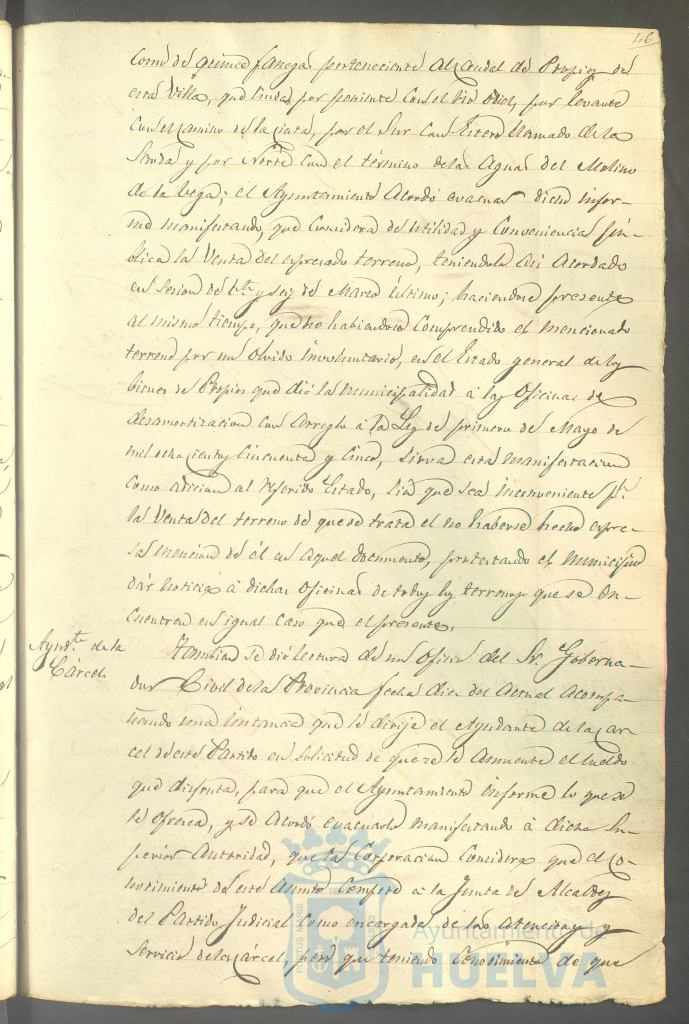 46
como de quince fanegas perteneciente al Caudal de Propios de
esta Villa, que linda por poniente con el rio Odiel, por levante
con el camino de la cinta, por el Sur con Estero llamado de la
y por Norte con el término de las Aguas del Molino
de la Vega; el Ayuntamiento Acordó evacuar dicho infor-
me manifestando, que Considera de utilidad y Conveniencia pú-
blica la Venta del espresado terreno, teniendola asi Acordado
en Sesion de Vte. y seis de Marzo último; haciendose presente
al mismo tiempo, que no habiendose Comprendido el mencionado
terreno por un olvido involuntario, en el Estado general de los
bienes de Propios que dió la municipalidad á las Oficinas de
desamortizacion con arreglo á la Ley de primero de Mayo de
mil ochocientos Cincuenta y Cinco, sirva esta manifestacion
como adicion al referido Estado, sin que sea inconveniente pa.
la Venta del terreno de que se trata el no haberse hecho espre-
sa mencion de él en aquel documento, protestando el Municipio
dar noticia á dichas Oficinas de todos los terrenos que se en-
cuentren en igual caso que el presente.
Aynd.te de la
Cárcel
Tambien se dió lectura de un Oficio del Sr. Goberna-
dor Civil de la Provincia fecha diez del Actual Acompa-
ñando una instancia que le dirije el Ayudante de la Car-
cel de este Partido en solicitud de que se le aumente el sueldo
que disfruta, para que el Ayuntamiento informe lo que se
le ofrezca, y se Acordó evacuarlo manifestando á dicha Su-
perior Autoridad, que la Corporacion Considera que el co-
nocimiento de este asunto Compete á la Junta de Alcaldes
del Partido Judicial como encargada de las atenciones y
Servicio de la Cárcel, pero que teniendo Conocimiento de que
Ayuntamiento de
HUELVA